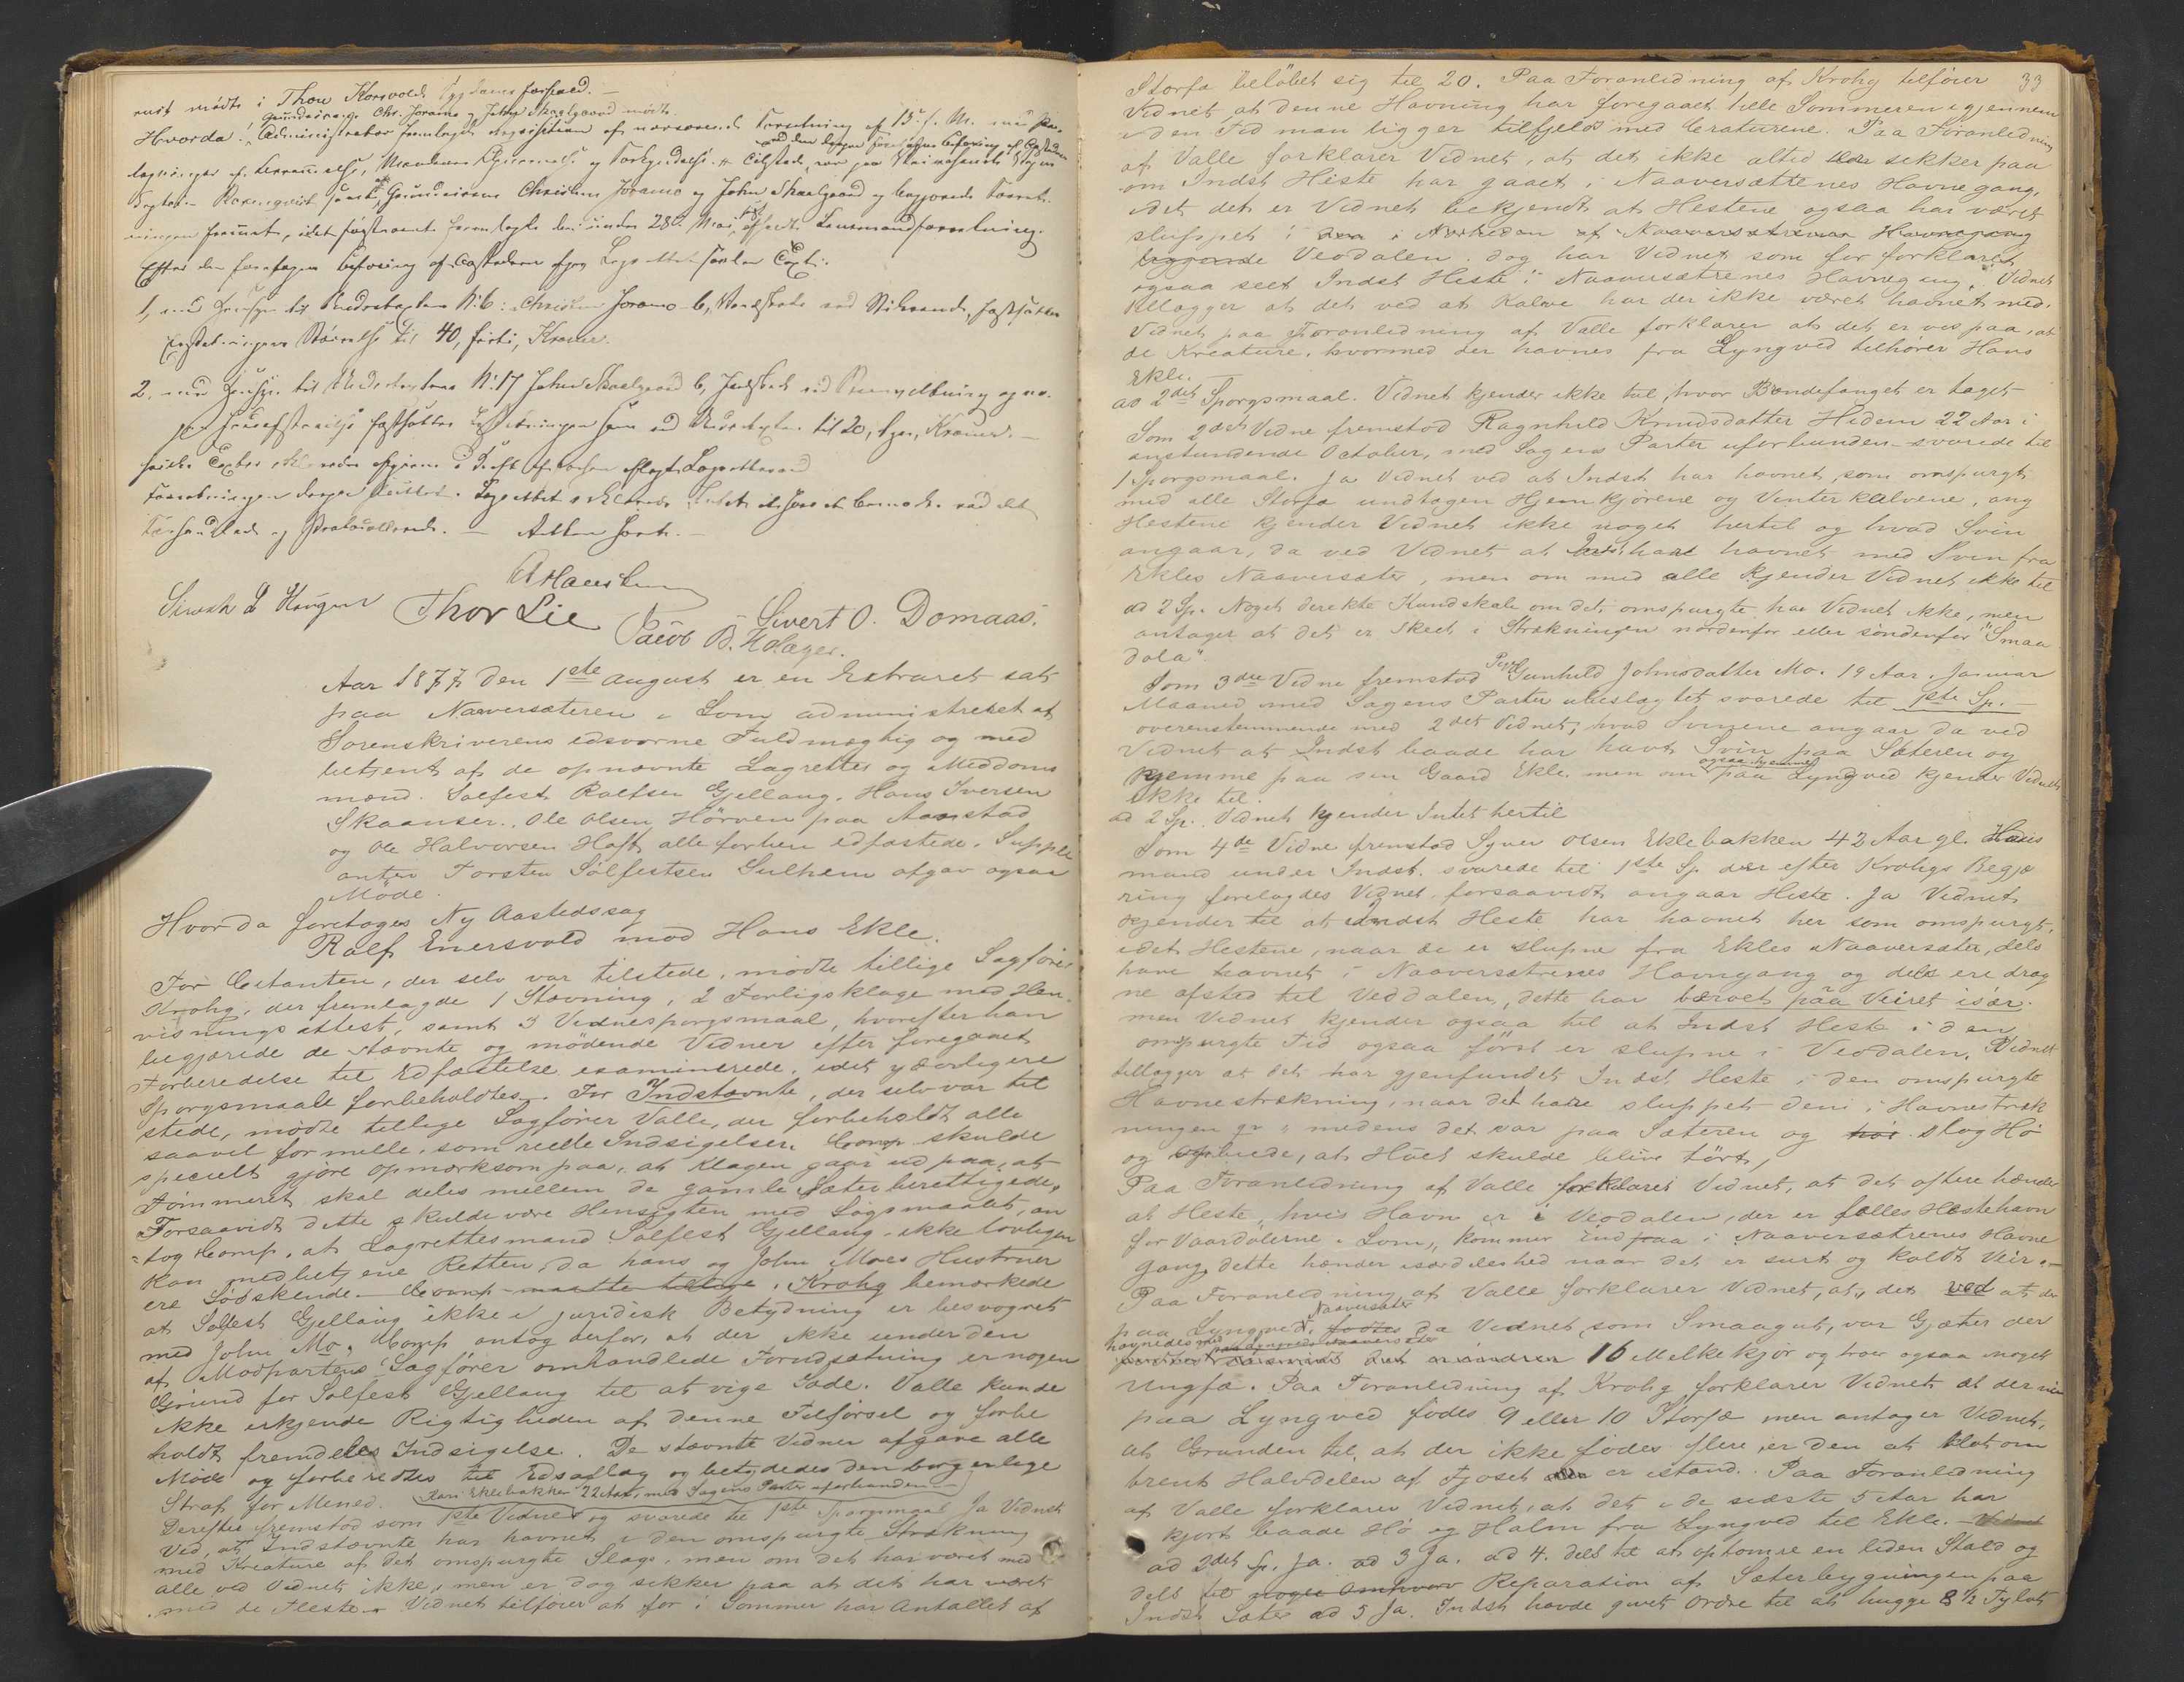 mit mødte i Thore Korsvolds
Grundeierne Chr. Joramo og John Skaalgaard mødte.
Hvorda! Administrator fremlagde Reqvisition af nærværende Forretning af 13de f. M. med Paa-
tegninger af Berammelse, Mændenes og Forkyndelse.
Grundeierne Christen Joramo og John Skaalgaard og begjærede Forret-
ningen fremmet, idet fremlagde den under 28de Mai afholdte Lensmandsforretning.
Efter den foretagne Befaring af Aastederne afgav Lagrettet saadan Taxt:
1, med Hensyn til Undertaxten N: 6: Christen Joramo
Erstatningens Størrelse til 40, firti, Kroner.
2, med Hensyn til Undertaxten N: 17 John Skaalgaard
fastsættes Erstatningen som ved Undertaxten til 20, tyve, Kroner. —
Forretningen derpaa sluttet. Lagrettet erklærede Intet at have at bemærke ved det
Forhandlede og Protocollerede. — Retten hævet. —
A Hansen
Sivert O. Domaas.
Thor Lie
Jacob B. Hølager.
Aar 1877 den 1ste August er en Extraret sat
paa Naaversæteren i Lom administreret af
Sorenskriverens edsvorne Fuldmægtig og med
betjent af de opnævnte Lagrettes og Meddoms
mænd. Solfest Ralfsen Gjellaug, Hans Iversen
Skaanser, Ole Olsen Hørven paa Aanstad
og Ole Halvorsen Hoft alle forhen edfæstede. Supple
anten Torsten Solfestsen Sulhem afgav ogsaa
Møde.
Hvorda foretoges Ny Aastedssag
Ralf Enersvold mod Hans Ekle.
For Citanten, der selv var tilstede, mødte tillige Sagfører
Krohg, der fremlagde 1 Stævning, 2 Forligsklage med Hen-
visnings attest, samt 3 Vidnesporgsmaal, hvorefter han
begjærede de stævnte og mødende Vidner efter foregaaet
Forberedelse til Edfæstelse examinerede, idet yderligere
Spørgsmaale forbeholdtes. For Indstævnte, der selv var til
stede, mødte tillige Sagfører Valle, der forbeholdt alle
saavel formelle, som reelle Indsigelser. Comp skulde
specielt gjøre opmærksom paa, at Klagen gaar ud paa, at
Tømmeret skal deles mellem de gamle Sæterberettigede,
Forsaavidt dette skulde være Hensigten med Søgsmaalet, an
tog Comp. at Lagrettesmand Solfest Gjellaug ikke lovligen
kan medbetjene Retten, da hans og John Moes Hustruer
ere Sødskende. Comp maatte tillige. Krohg bemærkede
at Solfest Gjellaug ikke i juridisk Betydning er besvogret
med John Mo, Comp antog derfor, at der ikke under den
af Modpartens Sagfører omhandlede Forudsætning er nogen
Grund for Solfest Gjellaug til at vige Sæde. Valle kunde
ikke erkjende Rigtigheden af denne Tilførsel og forbe
holdt fremdeles Indsigelse. De stævnte Vidner afgave alle
Møde og forberedtes til Edsaflæg og betydedes den borgerlige
Straf for Mened. Kari Eklebakken 22 Aar, med Sagens Parter uforbunden
Derefter fremstod som 1ste Vidne og svarede til 1ste Sporgsmaal Ja Vidnet
ved, at Indstævnte har havnet i den omspurgte Strækning
med Kreature af det omspurgte Slags, men om det har været med
alle ved Vidnet ikke, men er dog sikker paa at det har været
med de Fleste. Vidnet tilføier at før i Sommer har Antallet af
33
Storfæ beløbet sig til 20. Paa Foranledning af Krohg tilføier
Vidnet, at denne Havning har foregaaet hele Sommeren igjennem
i den Tid man ligger tilfjelds med Creaturene. Paa Foranledning
af Valle forklarer Vidnet, at det ikke altid er sikker paa
om Indst Heste har gaaet i Naaversættrenes Havnegang,
idet det er Vidnet bekjendt at Hestene ogsaa har været
sluppet i den i Nærheden af Naaversætrenes Havnegang
liggende Veodalen. dog har Vidnet som før forklaret
ogsaa seet Indst Heste i Naaversætrenes Havnegang. Vidnet
tillægger at det ved at Kalve har der ikke været havnet med.
Vidnet paa Foranledning af Valle forklarer at det er vis paa, at
de Kreature, hvormed der havnes fra Lyngved tilhører Hans
Ekle.
ad 2det Spørgsmaal. Vidnet kjender ikke til, hvor Brendefanget er taget
Som 2det Vidne fremstod Ragnhild Knudsdatter Hidem 22 Aar i
anstundende October, med Sagens Parter uforbunden svarede til
1 Spørgsmaal. Ja Vidnet ved at Indst har havnet som omspurgt
med alle Storfæ undtagen Hjemkjørene og Vinterkalvene, ang
Hestene kjender Vidnet ikke noget hertil og hvad Svin
angaar, da ved Vidnet at Indst har havnet med Svin fra
Ekles Naaversæter, men om med alle kjender Vidnet ikke til
ad 2 Sp. Noget direkte Kundskab om det omspurgte har Vidnet ikke, men
antager at det er skeet i Strækningen nordenfor eller søndenfor "Smaa
dola".
Som 3die Vidne fremstod Pige Gunhild Johnsdatter Mo. 19 Aar. Januar
Maaned med Sagens Parter ubeslægtet svarede til 1ste Sp. —
overenstemmende med 2det Vidnet, hvad Svinene angaar da ved
Vidnet at Indst baade har havt Svin paa Sæteren og
hjemme paa sin Gaard Ekle. men om ogsaa hjemme paa Lyngved kjender Vidnet
ikke til.
ad 2 Sp. Vidnet kjender Intet hertil
Som 4de Vidne fremstod Syver Olsen Eklebakken 42 Aar gl. Huus
mand under Indst. svarede til 1ste Sp der efter Krohgs Begjæ
ring forelagdes Vidnet, forsaavidt angaar Heste. Ja Vidnet
kjender til at Indst Heste har havnet her som omspurgt,
idet Hestene, naar de er slupne fra Ekles Naaversæter, dels
have havnet i Naaversætrenes Havngang og dels ere drag
ne afsted til Veodalen, dette har beroet paa Veiret især.
men Vidnet kjender ogsaa til at Indst Heste i den
ompurgte Tid ogsaa først er slupne i Veodalen. Vidnet
tillægger at det har gjenfundet Indst Heste i den omspurgte
Havnestrækning, naar det havde sluppet dem i Havnestræk
ningen medens det var paa Sæteren og høi slog Hø
og biede, at Høet skulde blive tørt,
Paa Foranledning af Valle forklarer Vidnet, at det oftere hænder
at Heste, hvis Havn er i Veodalen, der er fælles Hestehavn
for Vaardølerne i Lom, kommer ind paa i Naaversætrenes Havne
gang, dette hænder isærdeleshed naar det er surt og koldt Veir.—
Paa Foranledning af Valle forklarer Vidnet, at det ved at der
paa Lyngved Naaversæter fødtes da Vidnet, som Smaagut, var Gjæter der
havnedes med paa Lyngveds Naaversæter 16 Melkekjør og tror ogsaa noget
Ungfæ. Paa Foranledning af Krohg forklarer Vidnet at der nu
paa Lyngved fødes 9 eller 10 Storfæ men antager Vidnet,
at Grunden til, at der ikke fødes flere, er den at blot om
trent Halvdelen af Fjøset er istand. Paa Foranledning
af Valle forklarer Vidnet, at det i de sidste 5 Aar har
kjørt baade Hø og Halm fra Lyngved til Ekle. — Vidnet
ad 2det Sp. Ja. ad 3 Ja. ad 4. dels til at optømre en liden Stald og
dels til nogle Omhverv Reparation af Sæterbygningen paa
Indst Sæter ad 5 Ja. Indst havde givet Ordre til at hugge 8 1/2 Tylvt